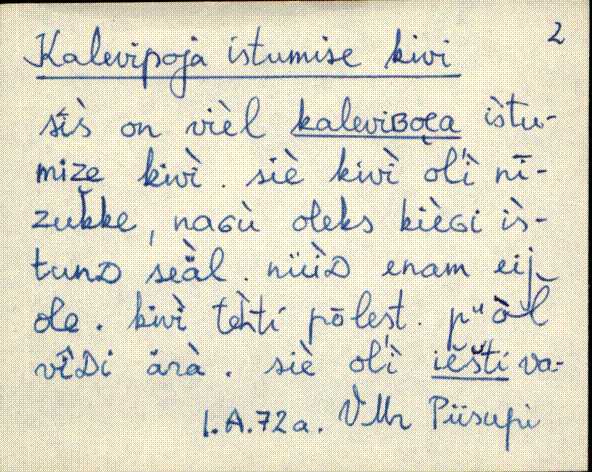 2
Kalevipoja istumise kivi
sīs̀ on vièl kaleviʙoe̯a ìstu-
mize kivì. siè kivì òl'ì nī-
zukke, naɢù oleks kièɢi ìs-
tunᴅ seäl. nüüᴅ̀ enam eij
ole. kivì tèhti pōlest. pᵘòl
vîᴅi ärà. siè ol'ì iešti va-
I.A.72a. VMr Piisupi